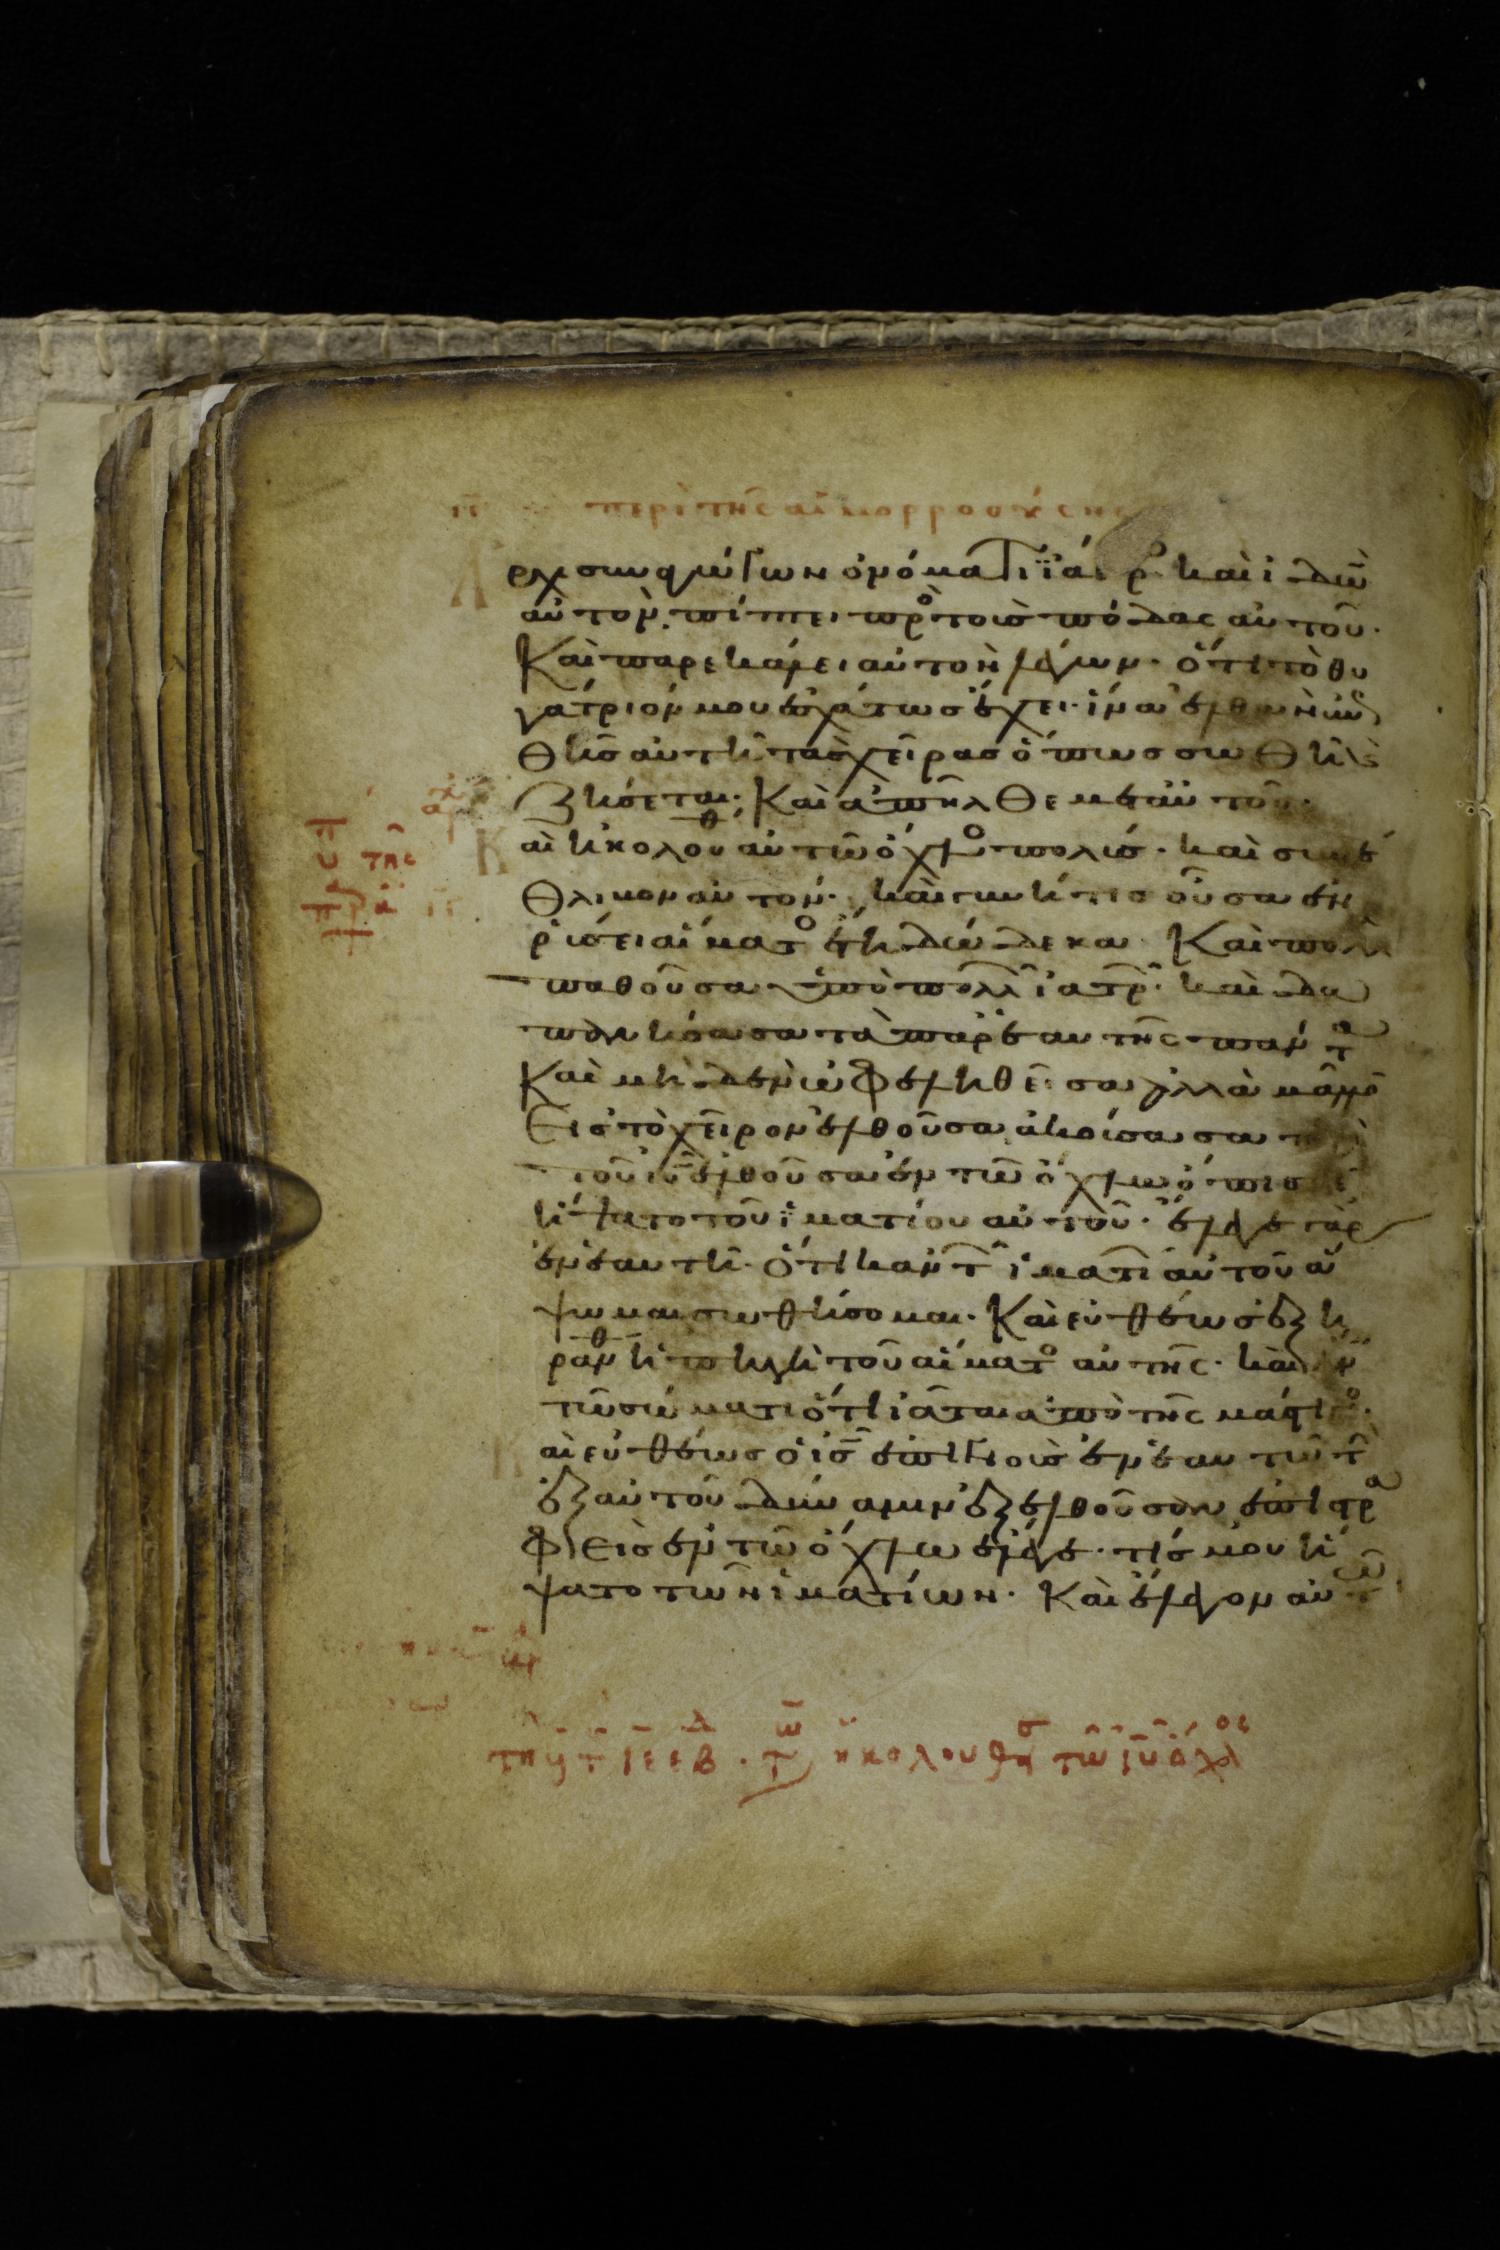 περὶ τῆς αἱμορροούσης
ρχισυναγώγων ὀνόματι ϊάειρο καὶ ἰδὼν
αὐτὸν πίπτει προ τοὺσ πόδας αὐτοῦ·
Καὶ παρεκάλει αὐτὸν λέγων· ὅτι τὸ θυ
γάτριόν μου ἐσχάτωσ ἔχει· ἵνα ἐλθὼν
θῆσ αὐτῆ τὰσ χεῖρασ ὅπωσ σωθῆ
ζήσεται· Καὶ ἀπῆλθε μετ αὐτοῦ·
αὶ ἠκολουθ αὐτῶ ὄχλο πολύσ· καὶ συνέ
θλιβον αὐτόν· καὶ γυνή τισ οὖσα ἐν
ρύσει αἵματο ἔτη δώδεκα· Καὶ πολλ
παθοῦσα ὑπὸ πολλ ἰατρ· καὶ δα
πανήσασα τὰ παρ ἑαυτῆς παντα
Καὶ μηδὲν ὠφεληθεῖσα ἀλλὰ μᾶλλο
Εἰσ τὸ χεῖρον ἐλθοῦσα ἀκούσασα περὶ
τοῦ ιυ ἐλθοῦσα ἐν τῶ ὄχλω ὄπισθε
ἥψατο τοῦ ϊματίου αὐτοῦ· ἔλεγε γὰρ
ἐν ἑαυτῆ· ὅτι κἂν τ ἱματί αὐτοῦ ἅ
ψωμαι σωθήσομαι· Καὶ εὐθέωσ ἐξη
ράνθ ἡ πηγὴ τοῦ αἵματο αὐτῆς· καὶ
τῶ σώματι ὅτι ἰᾶται ἀπὸ τῆς μάστιγο·
αὶ εὐθέωσ ὁ ισ ἐπιγνοὺσ ἐν ἑαυτῶ τ
ἐξ αὐτοῦ δύναμιν ἐξελθοῦσαν ἐπιστρα
φεὶσ ἐν τῶ ὄχλω ἔλεγε· τίσ μου ἥ
ψατο τῶν ἱματίων· Καὶ ἔλεγον αὐτω
ἠκολούθησ τῶ ιυ ὄχλος